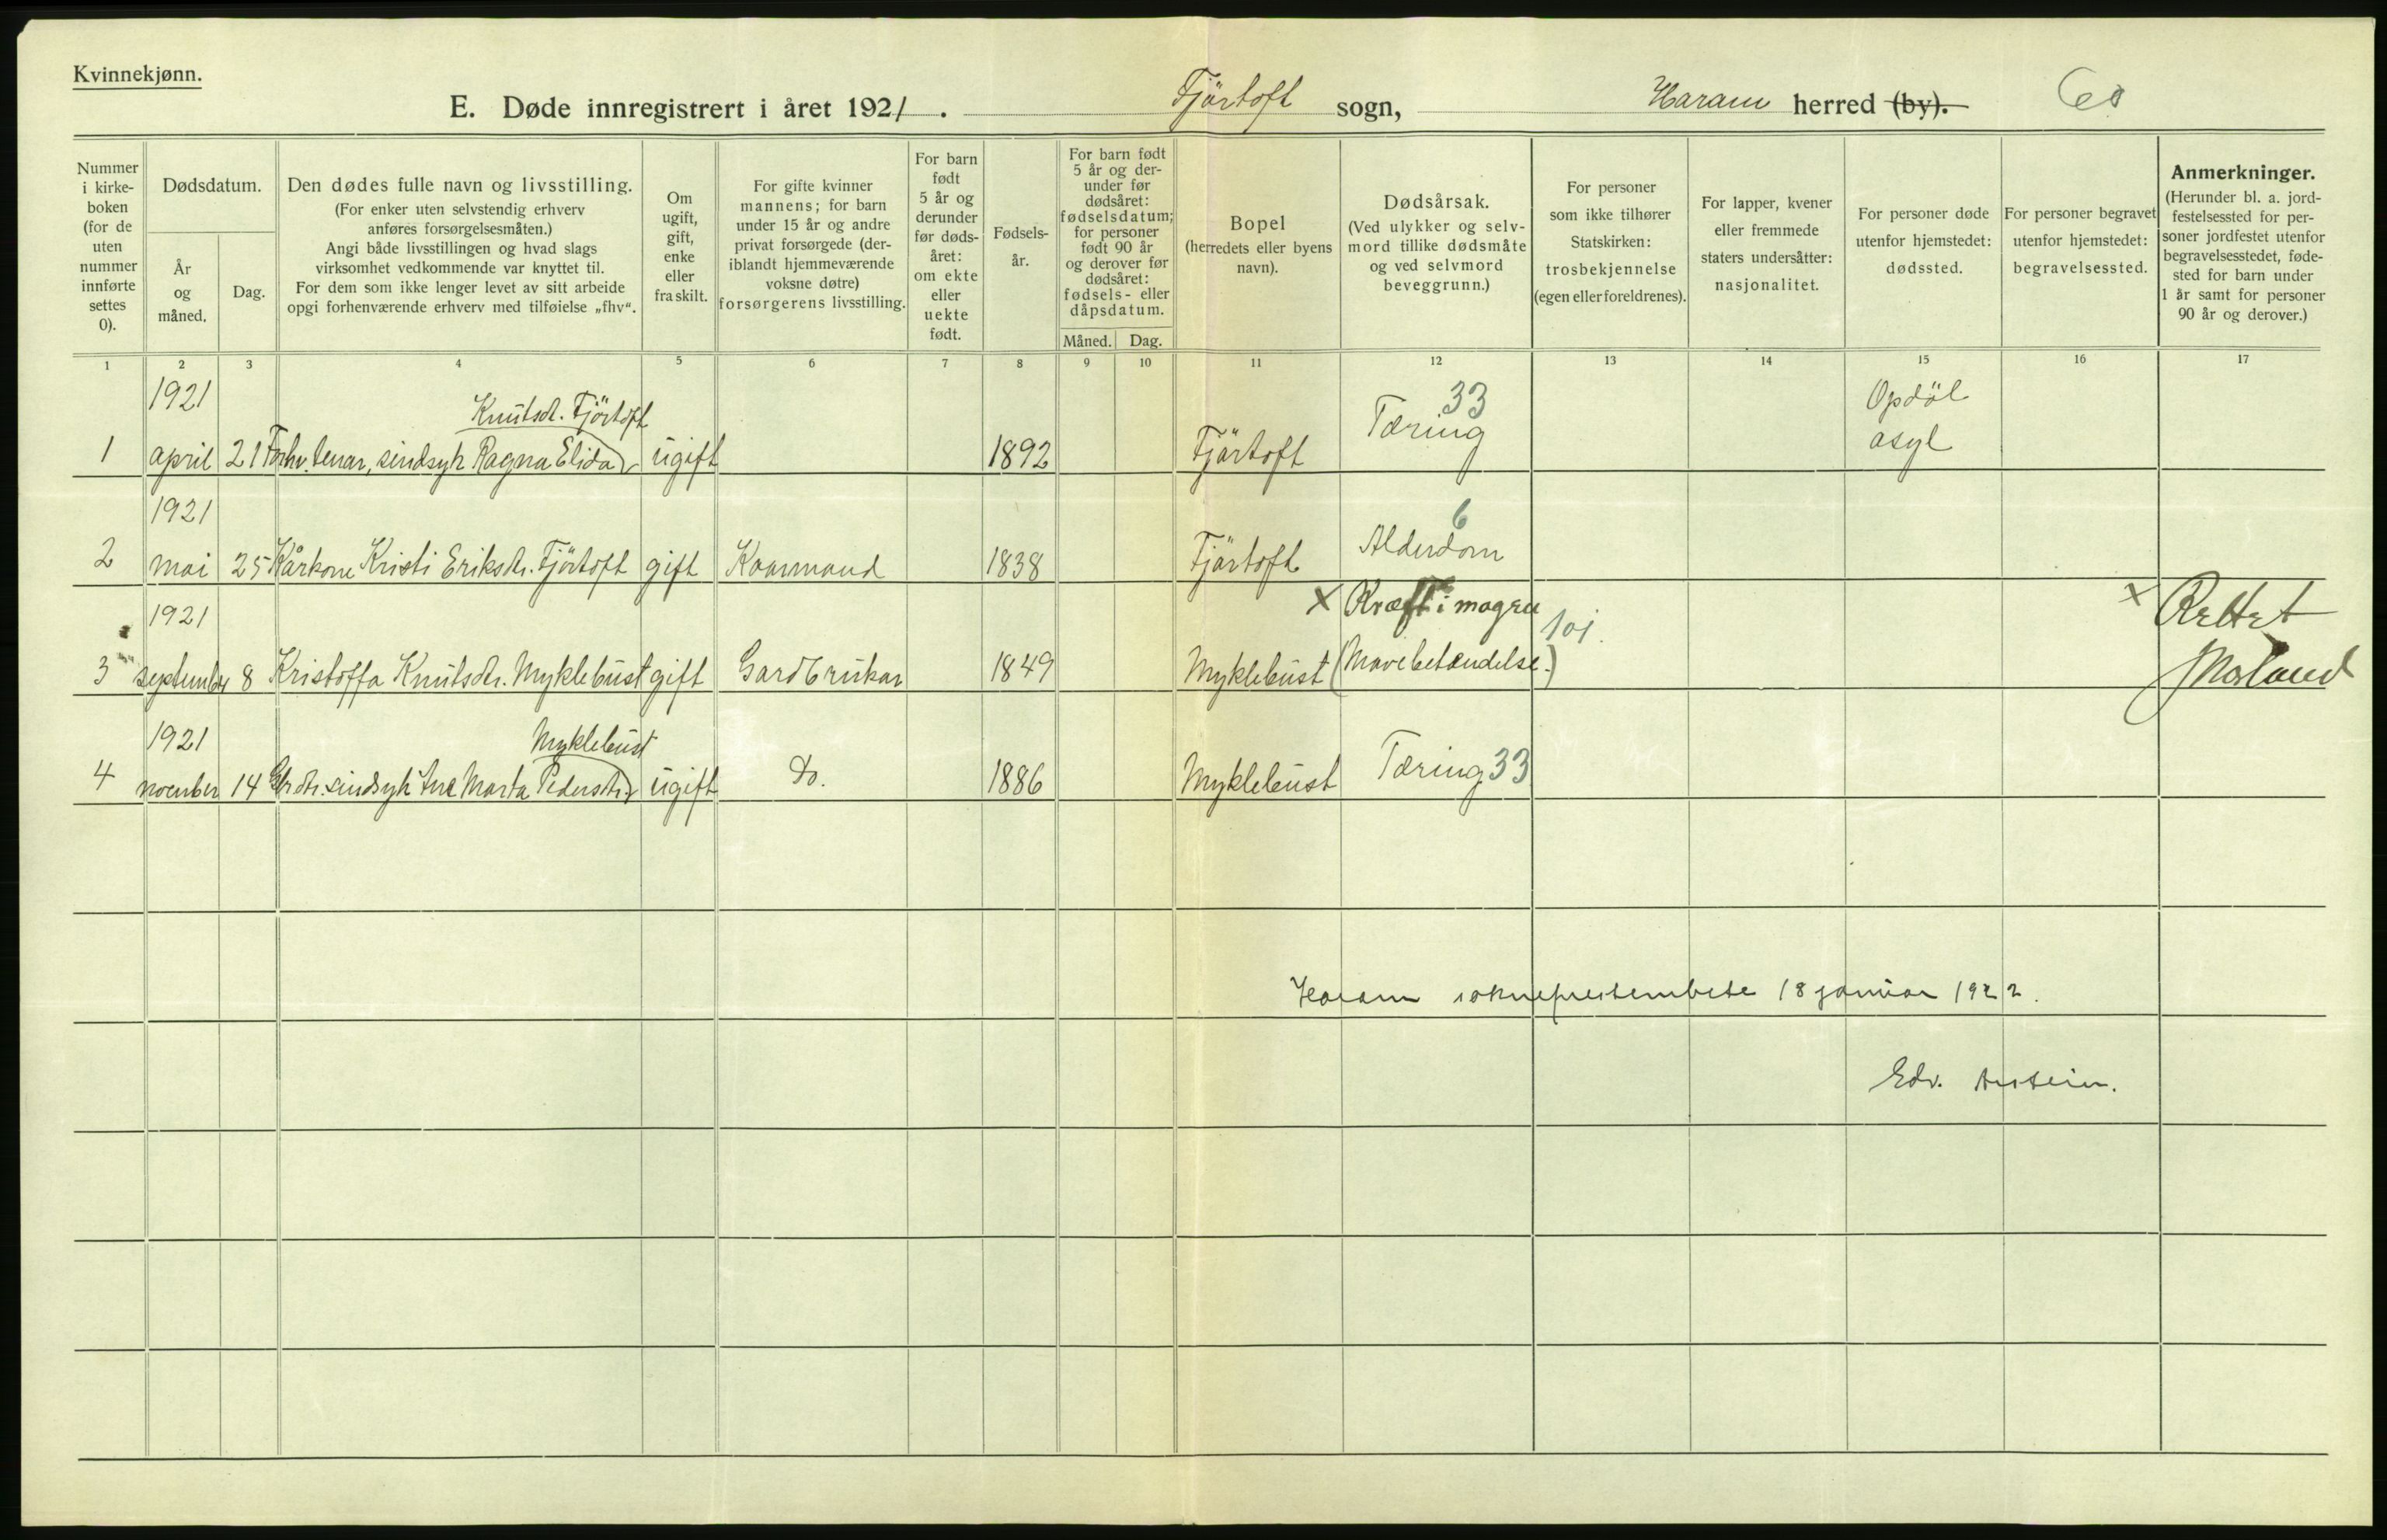 Kvinnekjønn.
E. Døde innregistrert i året 1921. Fjörtoft sogn, Haram herred (by).
Nummer i kirke-boken (for de uten nummer innførte settes 0).
Dødsdatum.
År og måned.
Dag.
Den dødes fulle navn og livsstilling.
(For enker uten selvstendig erhverv
anføres forsørgelsesmåten.)
Angi både livsstillingen og hvad slags
virksomhet vedkommende var knyttet til.
For dem som ikke lenger levet av sitt arbeide
opgi forhenværende erhverv med tilføielse „fhv“.
Om ugift, gift, enke eller fraskilt.
For gifte kvinner
mannens; for barn
under 15 år og andre
privat forsørgede (der-
iblandt hjemmeværende
voksne døtre)
forsørgerens livsstilling.
For barn født 5 år og derunder før døds-året: om ekte eller uekte født.
Fødsels-år.
For barn født
5 år og der-
under før
dødsåret:
fødselsdatum;
for personer
født 90 år
og derover før
dødsåret:
fødsels- eller
dåpsdatum.
Måned. Dag.
Bopel
(herredets eller byens
navn).
Dødsårsak.
(Ved ulykker og selv-
mord tillike dødsmåte
og ved selvmord
beveggrunn.)
For personer
som ikke tilhører
Statskirken:
trosbekjennelse
(egen eller foreldrenes).
For lapper, kvener
eller fremmede
staters undersåtter:
nasjonalitet.
For personer døde
utenfor hjemstedet:
dødssted.
For personer begravet
utenfor hjemstedet:
begravelsessted.
Anmerkninger.
(Herunder bl. a. jord-
festelsessted for per-
soner jordfestet utenfor
begravelsesstedet, føde-
sted for barn under
1 år samt for personer
90 år og derover.)
1 2 3 4 5 6 7 8 9 10 11 12 13 14 15 16 17
1921 Knutsdr. Fjörtoft 33 Opdöl
1 april 21 Forhv. tenar, sindsyk Ragna Elida ugift 1892 Fjörtoft Tæring asyl
1921 6
2 mai 25 Kårkone Kristi Eriksdr. Fjörtoft gift Kaarmand 1838 Fjörtoft Alderdom
1921 x Kræft i magen 101. x Rettet
3 september 8 Kristoffa Knutsdr. Myklebust gift Gardbrukar 1849 Myklebust (Mavebetændelse.)
1921 Myklebust
4 november 14 sindsyk Marta Pedersdr. ugift do. 1886 Myklebust Tæring 33
Haram sokneprestembete 18 januar 1922.
Edv.